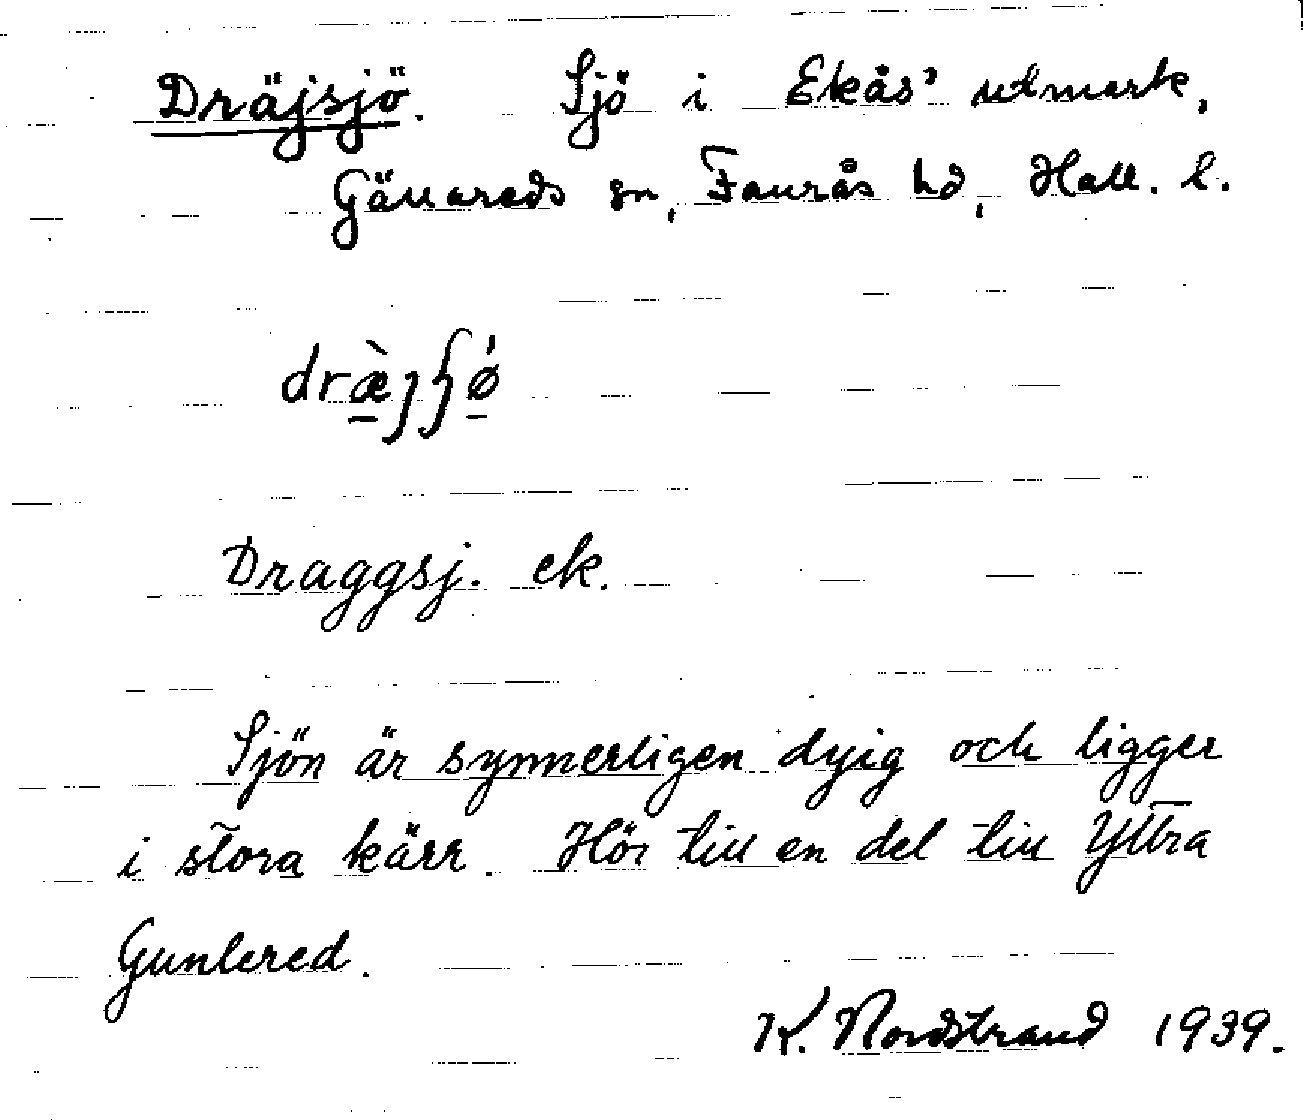 Dräjsjö. Sjö i Ekås' utmark,
Gällareds sn, Faurås hd, Hall. l.
dræ̀jʃǿ
Draggsj. ek.
Sjön är synnerligen dyig och ligger
i stora kärr. Hör till en del till Yttra
Gunlered.
K. Nordstrand 1939.